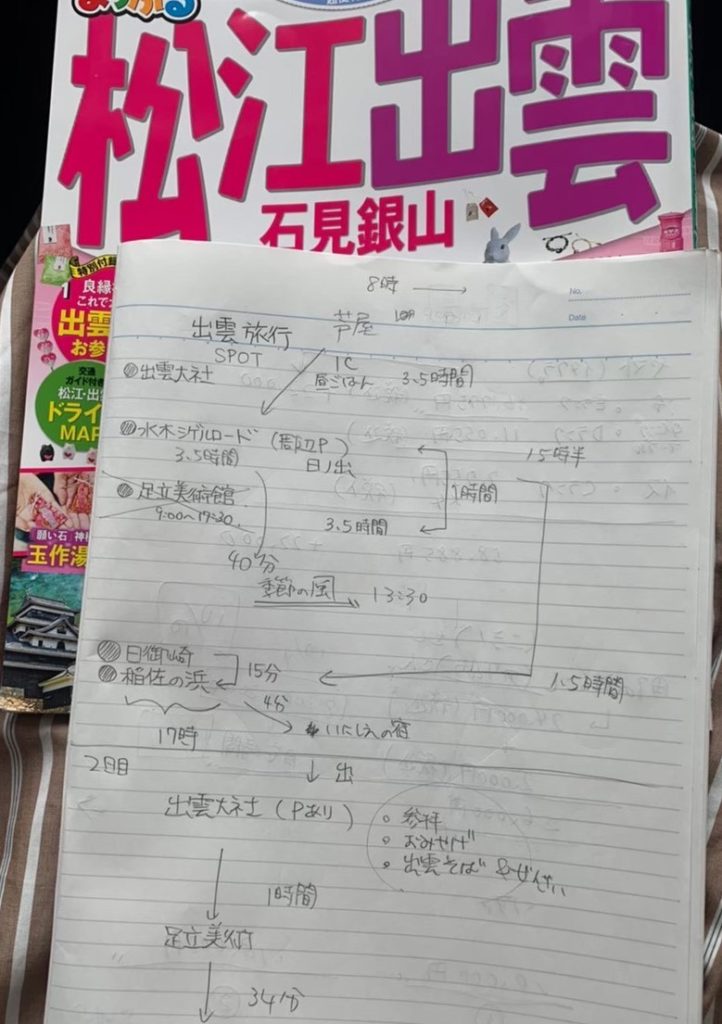 まっぷる
松江出雲
石見銀山
特別付録
1
良縁
これで
出雲
お参
交通
ガイド付き
松江・出
ドライ
MAP
願い石
玉作湯
No.
Date
8時
出雲旅行 芦屋
SPOT
IC
昼ごはん 3.5時間
出雲大社
水木シゲルロード (周辺P)
3.5時間
日ノ出
15時半
1時間
足立美術館
9:00~17:30
3.5時間
40分
季節の風 13:30
日御崎
稲佐の浜
15分
4分
1.5時間
17時
いにしえの宿
2日目
出
出雲大社 (Pあり)
参拝
おみやげ
出雲そば & ぜんざい
1時間
足立美術
34分